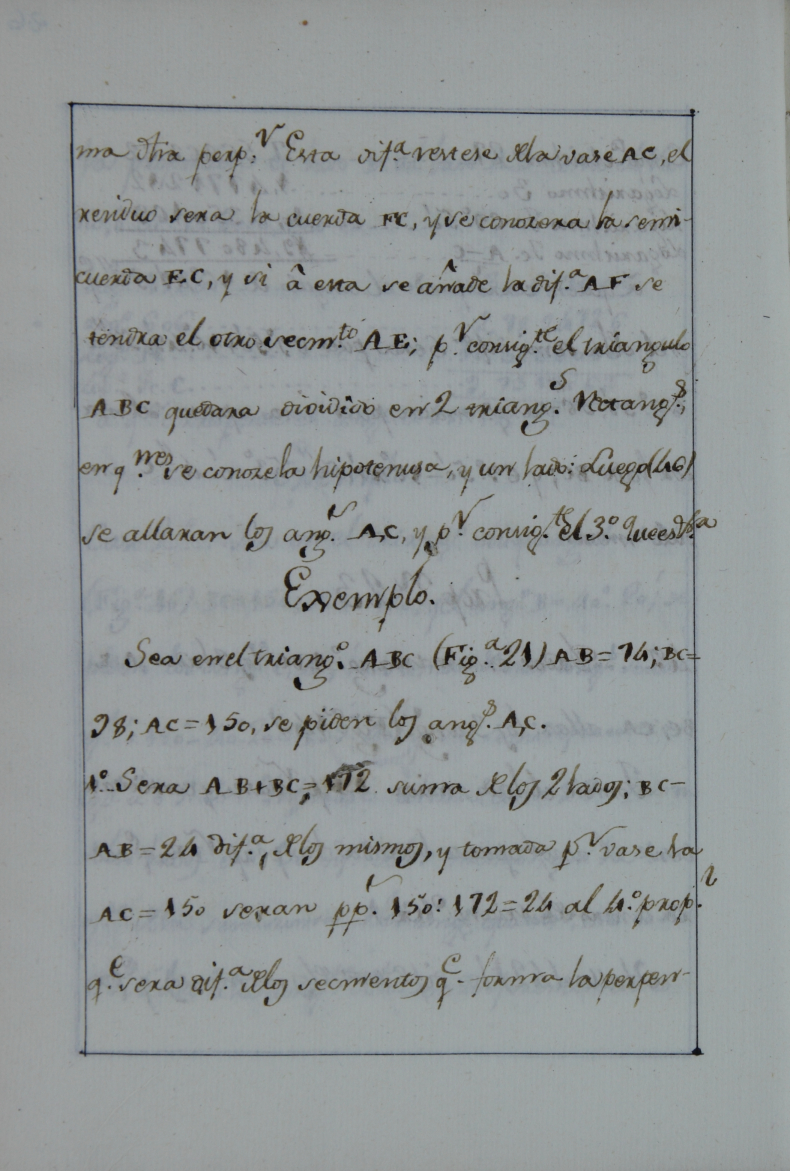 ma dha perp.r Esta dif.a restese dla vase AC, el
reniduo sera la cuerda FC, y se conozera la semi-
cuerda EC, y si â esta se añade la dif.a AF se
tendra el otro secm.to AE; p.r consig.te el triangulo
ABC quedara dividido en 2 triang.s Rectang.s,
en q.nes se conoze la hipotenusa, y un lado: Luego (46)
se allaran los ang.s A,C, y p.r consig.te el 3.o
Exemplo.
Sea en el triang.o ABC (Fig.a 21) AB=74; BC=
98; AC=150, se piden los ang.s A,C.
1.o Sera AB+BC=172 suma dlos 2 lados; BC-
AB=24 dif.a dlos mismos, y tomada p.r vase la
AC=150 seran pp.r 150:172=24 al 4.o prop.l
q.e sera dif.a dlos secmentos q.e forma la perpen-